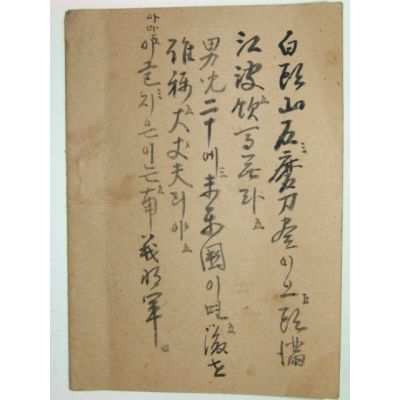 白頭山石磨刀盡이오 頭滿
江波飮馬無라
男兒二十에 未平國이면 後世
誰稱大丈夫리야
은이는 南 將軍